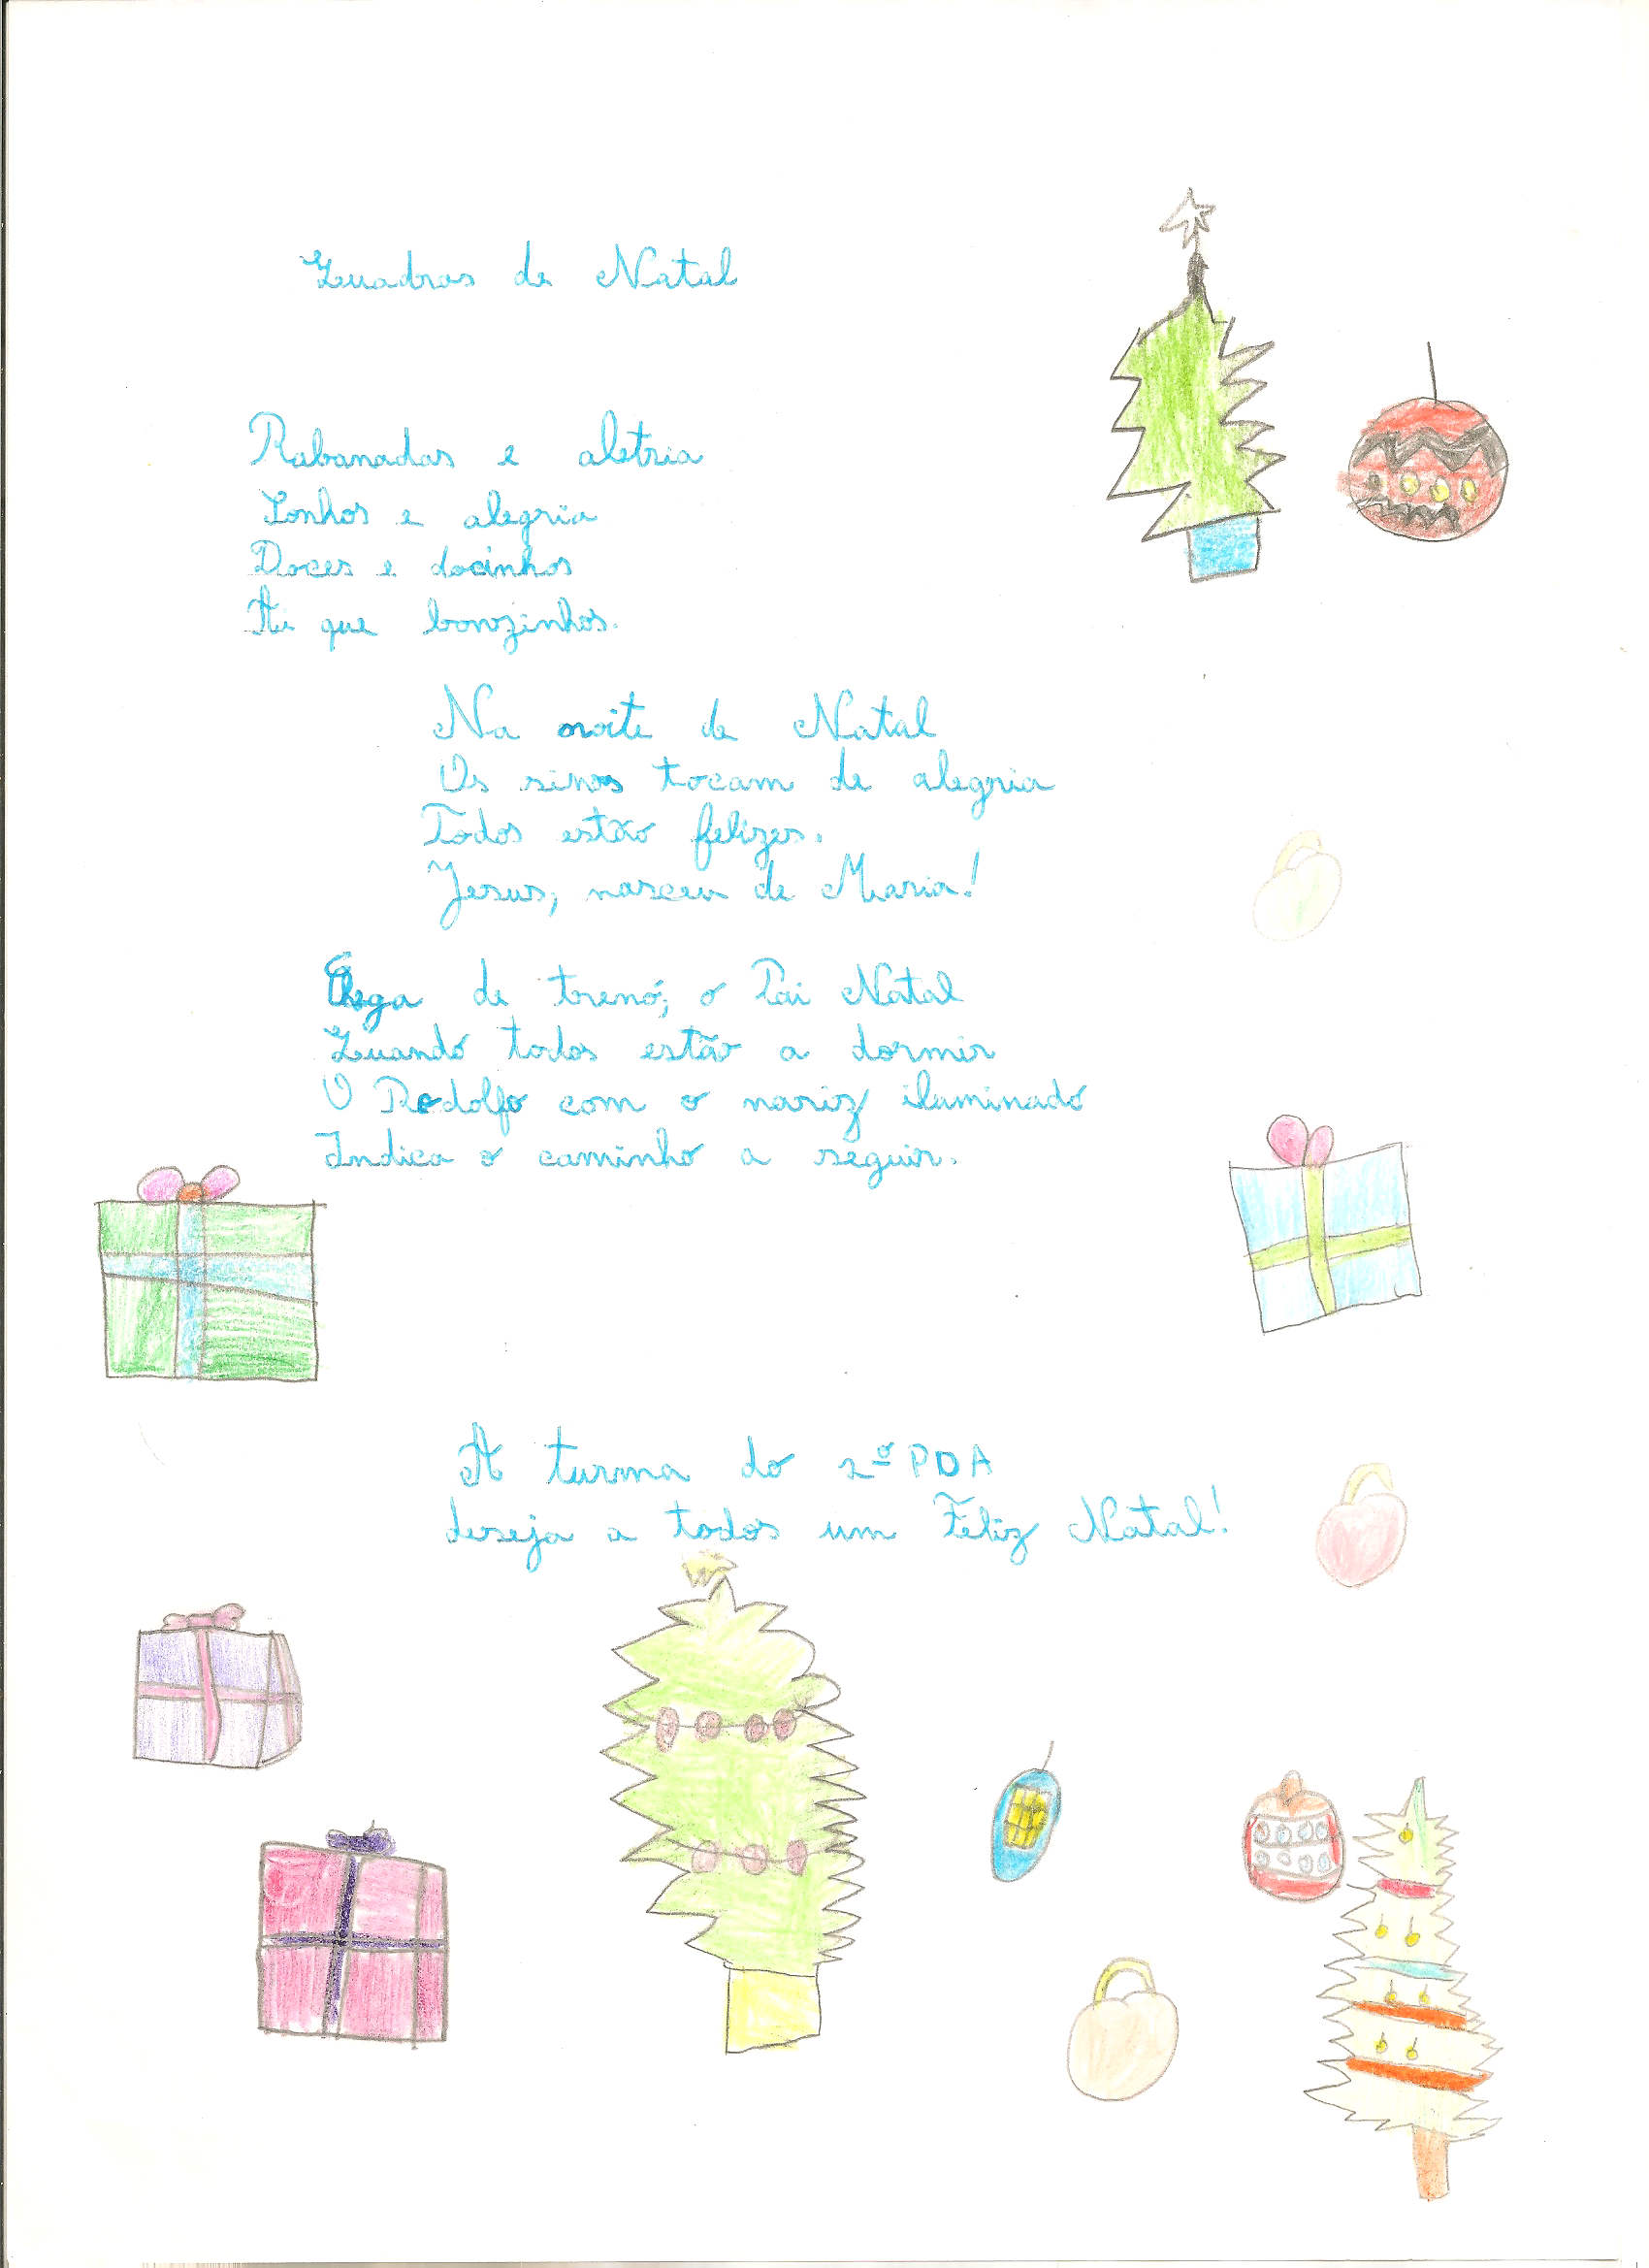 Quadras de Natal
Rabanadas e aletria
Sonhos e alegria
Doces e docinhos
Ai que bonzinhos.
Na noite de Natal
Os sinos tocam de alegria
Todos estão felizes.
Jesus, nasceu de Maria!
Chega de trenó, o Pai Natal
Quando todos estão a dormir
O Rodolfo com o nariz iluminado
Indica o caminho a seguir.
A turma do 2º PDA
deseja a todos um Feliz Natal!